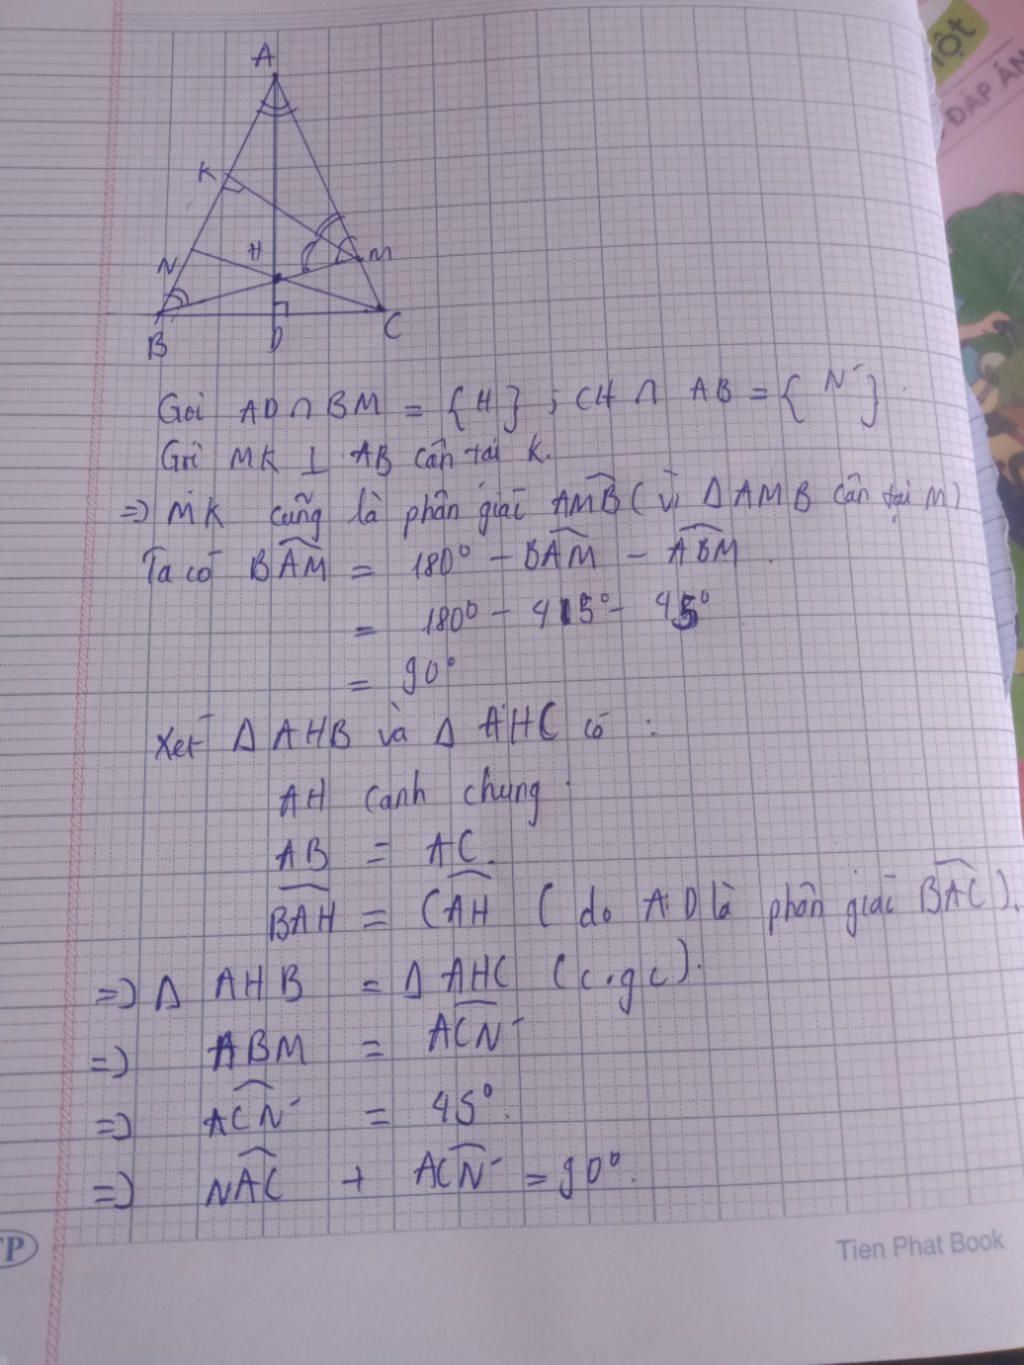 ĐÁP ÁN
A
K
H
N
M
B
D
C
Gọi AD ∩ BM = {H} ; CH ∩ AB = { N }
Gọi MK ⊥ AB cân tại K.
=> MK cũng là phân giác AMB ( vì Δ AMB cân tại M )
Ta có BAM = 180° - BAM - ABM .
= 180° - 45° - 45°
= 90°
Xét Δ AHB và Δ AHC có :
AH cạnh chung .
AB = AC.
BAH = CAH ( do AD là phân giác BAC ).
=> Δ AHB = Δ AHC ( c.g c ).
=> ABM = ACN
=> ACN = 45° .
=> NAC + ACN = 90° .
TP
Tien Phat Book